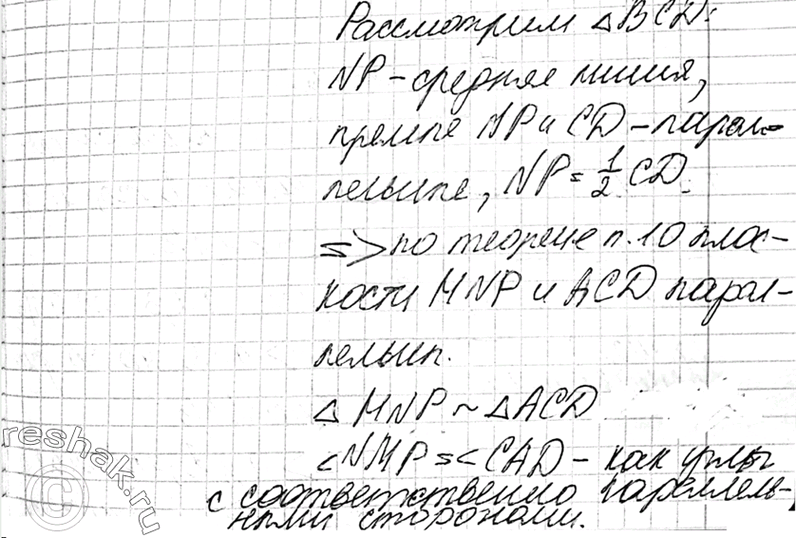 Рассмотрим △BCD:
NP - средняя линия,
прямые NP и CD - парал-
лельные, NP = 1/2 CD.
=> по теореме п.10 плос-
кости MNP и ACD парал-
лельны.
△ MNP ~ △ACD
<NMP = <CAD - как углы
с соответственно параллель-
ными сторонами.
reshak.ru
©